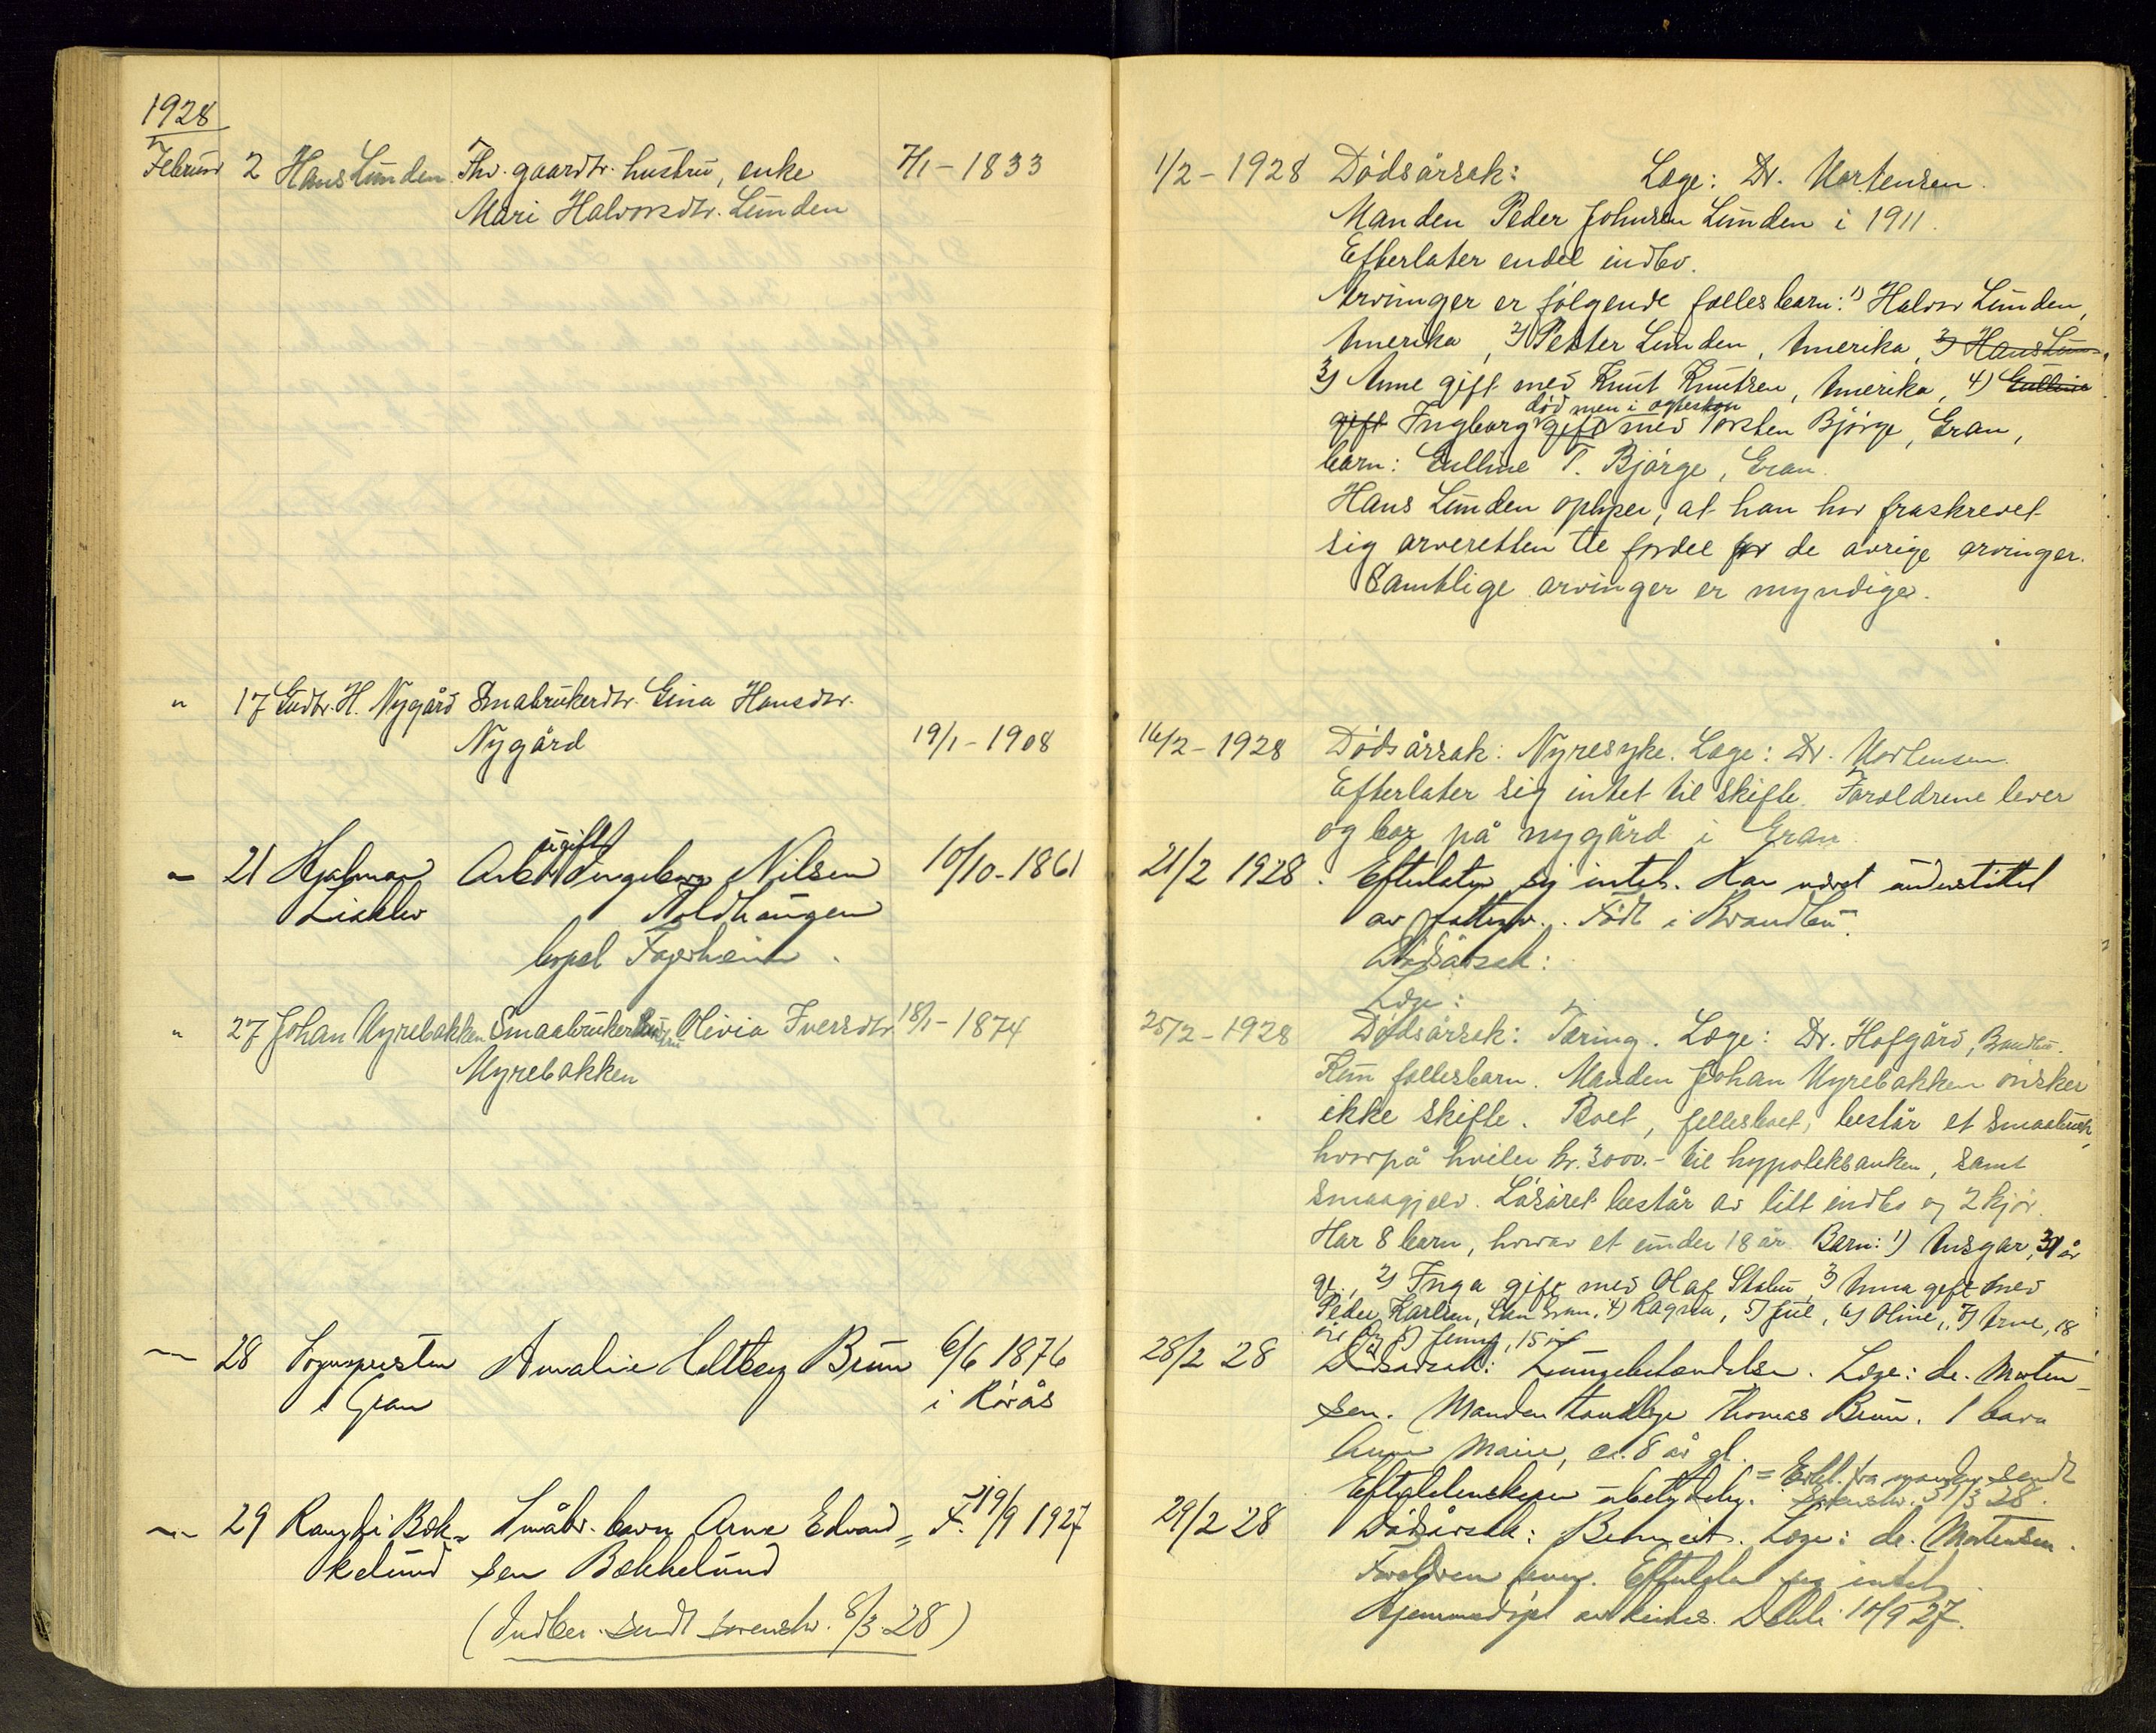 1928
Februar 2 Hans Lunden. Fhv. gaardbr. hustru, enke 7/1 - 1833
Mari Halvorsdtr. Lunden
1/2 - 1928 Dödsårsak: Læge: Dr. Mortensen.
Manden Peder Johnsen Lunden i 1911.
Efterlater endel indbo.
Arvinger er følgende fællesbarn: 1) Halvor Lunden,
Amerika, 2) Petter Lunden, Amerika, 3) Hans Lun-
3) Anne gift med Knut Knutsen, Amerika, 4) Gulline
død men i ægteskap
gift Ingborg gift med Torsten Bjørge, Gran,
barn: Gulline T. Bjørge, Gran.
Hans Lunden oplyser, at han har fraskrevet
sig arveretten til fordel for de øvrige arvinger.
Samtlige arvinger er myndige.
" 17 Gudbr. H. Nygård Smabrukerdtr. Gina Hansdtr.
Nygård 19/1 - 1908
16/2 - 1928 Dödsårsak: Nyresyke. Læge: Dr. Mortensen.
Efterlater sig intet til skifte. Foreldrene lever
og bor på nygård i Gran
ugift
- 21 Hjalmar Arb. Ingeborg Nilsen 10/10 - 1861
Lisklev Koldhaugen
bopel Fagerheim.
21/2 1928. Efterlater sig intet. Har været understøttet
av fattigv. Født i Brandbu.
Dödsårsak:
Læge:
" 27 Johan Myrebakken Smaabrukerhustru Olivia Iversdtr. 18/1 - 1874
Myrebakken
25/2 - 1928 Dödsårsak: Tæring. Læge: Dr. Hofgård, Brandbu.
Kun fællesbarn. Manden Johan Myrebakken ønsker
ikke skifte. Boet, fellesboet, består et smaabruk,
hvorpå hviler kr. 3000.- til hypotekbanken, samt
smaagjæld. Løsøret består av litt indbo og 2 kjør.
Har 8 barn, hvorav et under 18 år. Barn: 1) Ansgar, 31 år
gl., 2) Inga gift med Olaf Stabu, 3) Anna gift med
Peder Karlsen, Gran, 4) Ragna, 5) Juel, 6) Oline, 7) Arne, 18
år og 8) Jenny, 15 år
- 28 Sognepresten Amalie Heltberg Bruun 6/6 1876
i Gran i Rörås
28/2 28 Dödsårsak: Lungebetændelse. Læge: dr. Morten-
sen. Manden tandlæge Thomas Bruun. 1 barn
Anne Marie, ca. 8 år gl.
Efterladenskaper ubetydelig. = Erkl. fra manden sendt
sorenskr. 31/3 28.
- 29 Rangdi Bæk- Småbr. barn Arne Edvard- F. 19/9 1927
kelund sen Bækkelund
(Indber. sendt sorenskr. 8/3 28)
29/2 28 Dödsårsak: Læge: dr. Mortensen.
Foreldrene lever. Efterlater sig intet.
Hjemmedøpt 10/9 27.